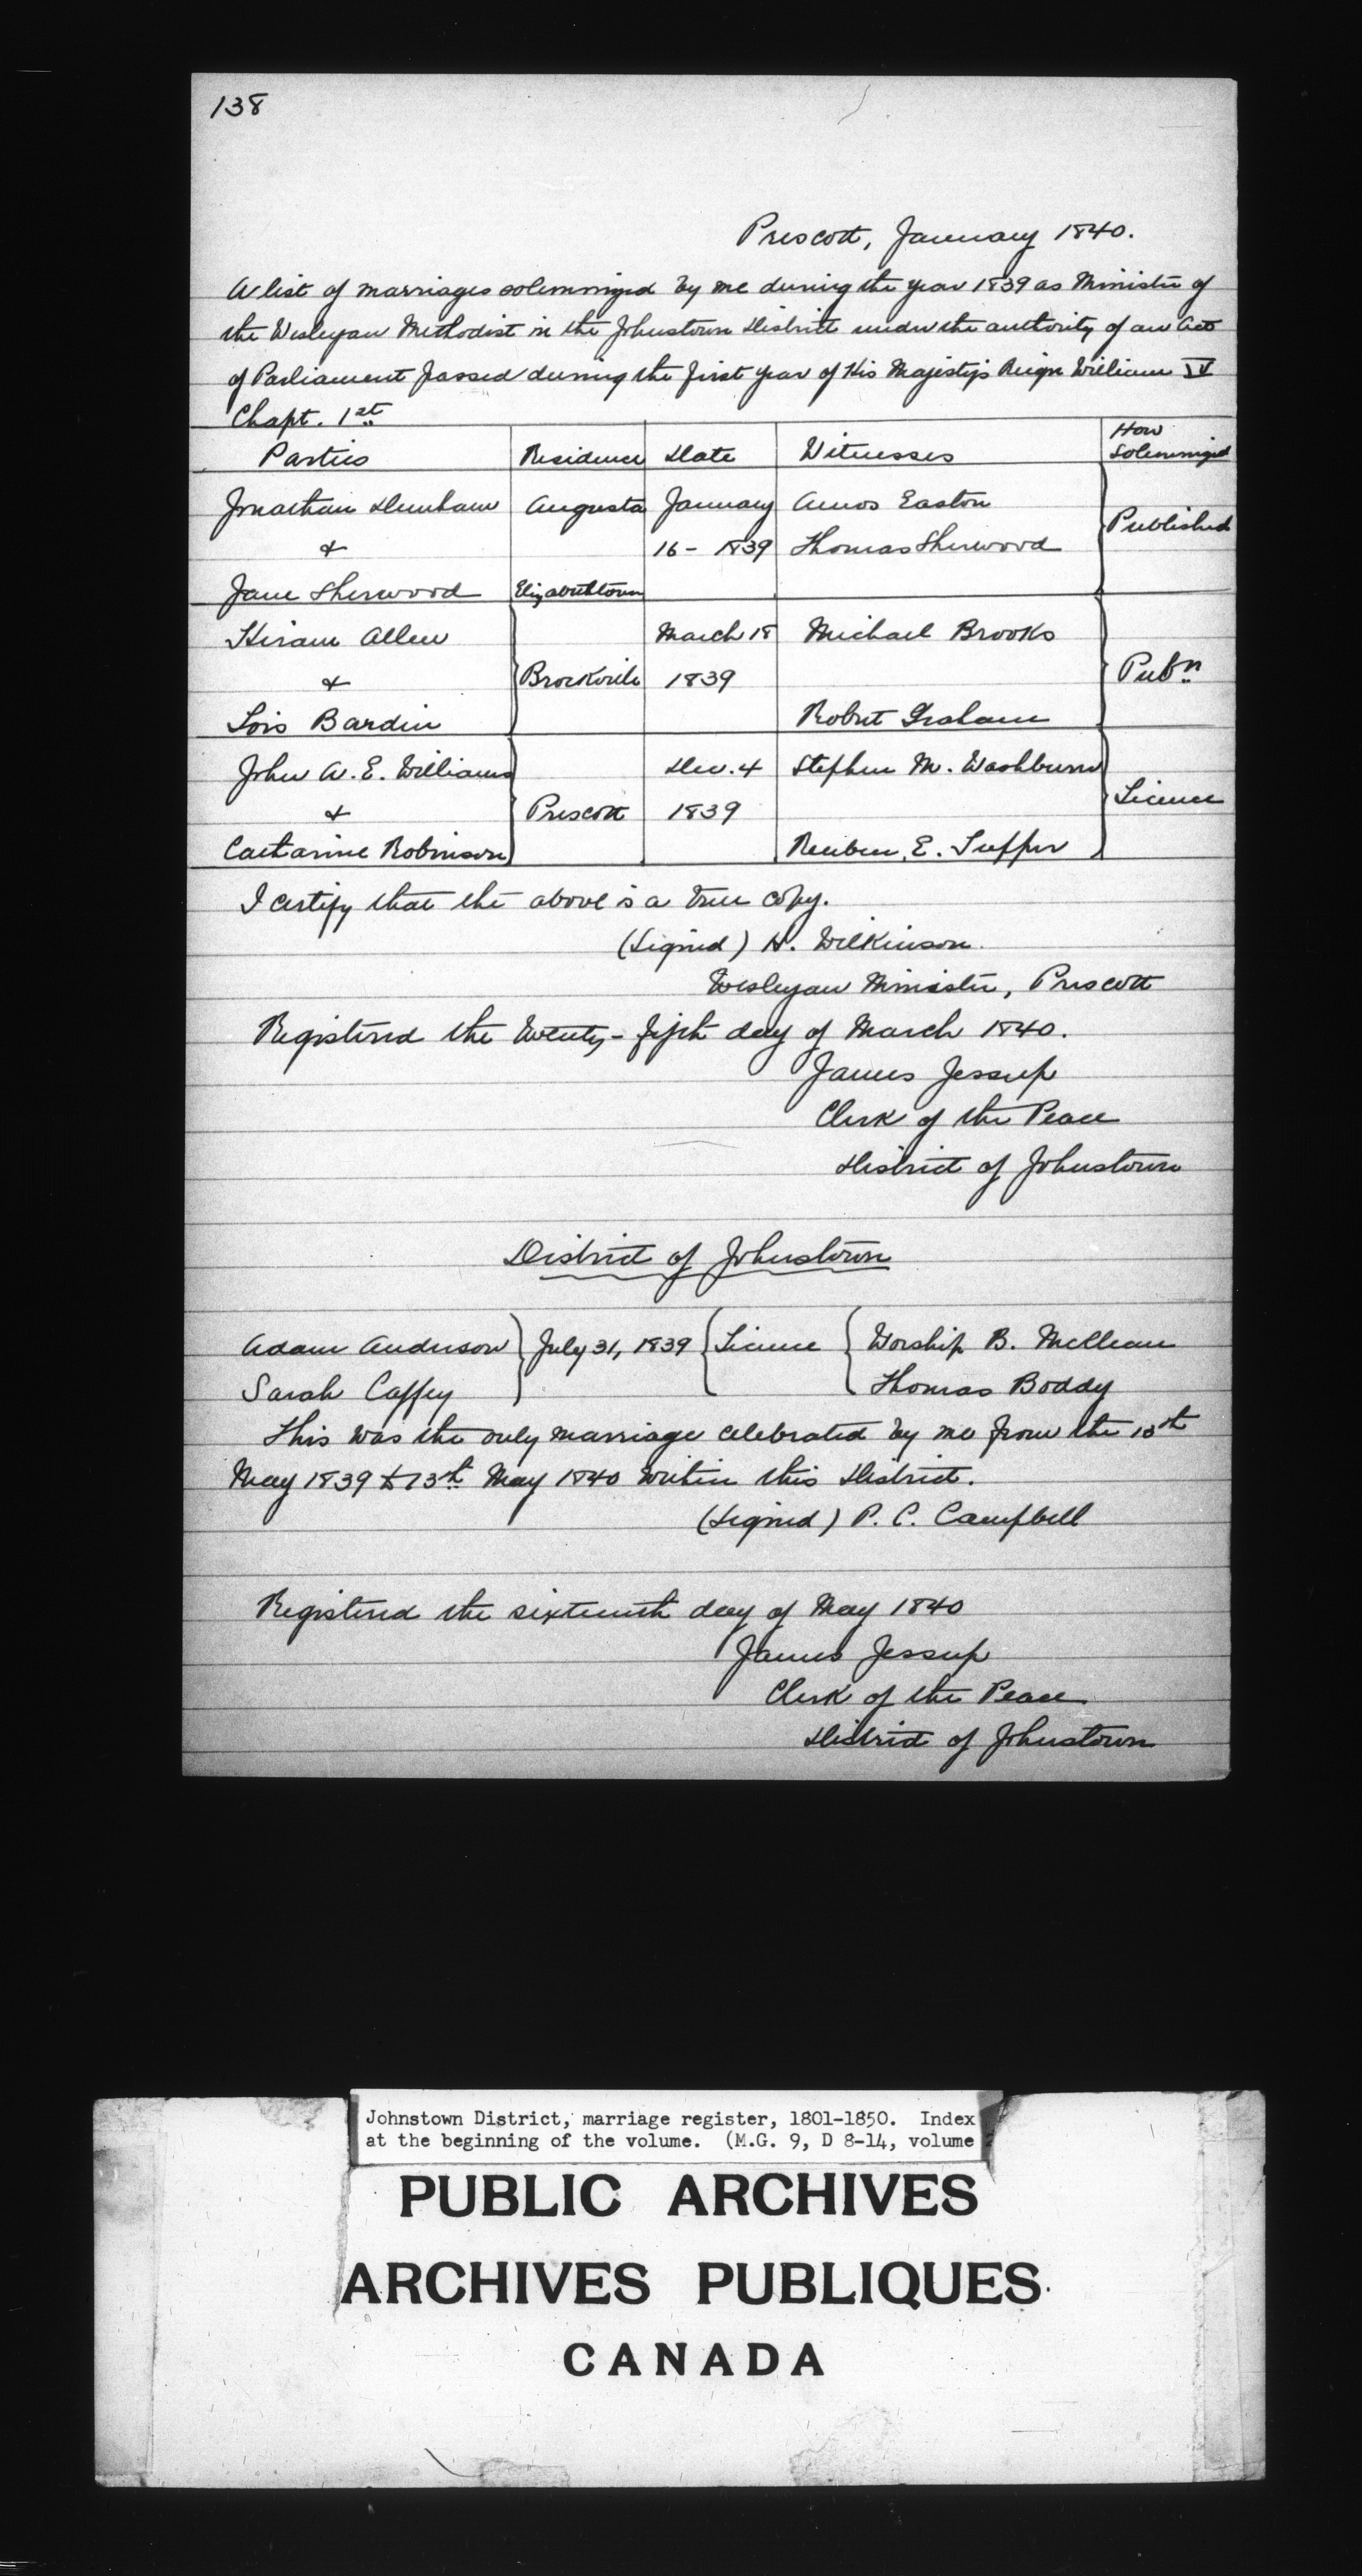 138
Prescott, January 1840.
A list of marriages solemnized by me during the year 1839 as Minister of
the Wesleyan Methodist in the Johnstown District under the authority of an Act
of Parliament passed during the first year of His Majesty's Reign William IV
Chapt. 1st
Parties Residence Date Witnesses How Solemnized
Jonathan Dunham Augusta January Amos Easton
& 16 - 1839 Thomas Sherwood Published
Jane Sherwood Elizabethtown
Hiram Allen March 18 Michael Brooks
& Brockville 1839 Pubn
Lois Bardin Robert Graham
John A. E. Williams Dec. 4 Stephen M. Washburn
& Prescott 1839 Licence
Catharine Robinson Reuben E.
I certify that the above is a true copy.
(Signed) H. Wilkinson.
Wesleyan Minister, Prescott
Registered the twenty-fifth day of March 1840.
James Jessup
Clerk of the Peace
District of Johnstown
District of Johnstown
Adam Anderson July 31, 1839 Licence Worship B. McClean
Sarah Caffey Thomas Boddy
This was the only marriage celebrated by me from the 13th
May 1839 to 13th May 1840 within this District.
(Signed) P. C. Campbell
Registered the sixteenth day of May 1840
James Jessup
Clerk of the Peace
District of Johnstown
Johnstown District, marriage register, 1801-1850. Index
at the beginning of the volume. (M.G. 9, D 8-14, volume
PUBLIC ARCHIVES
ARCHIVES PUBLIQUES
CANADA